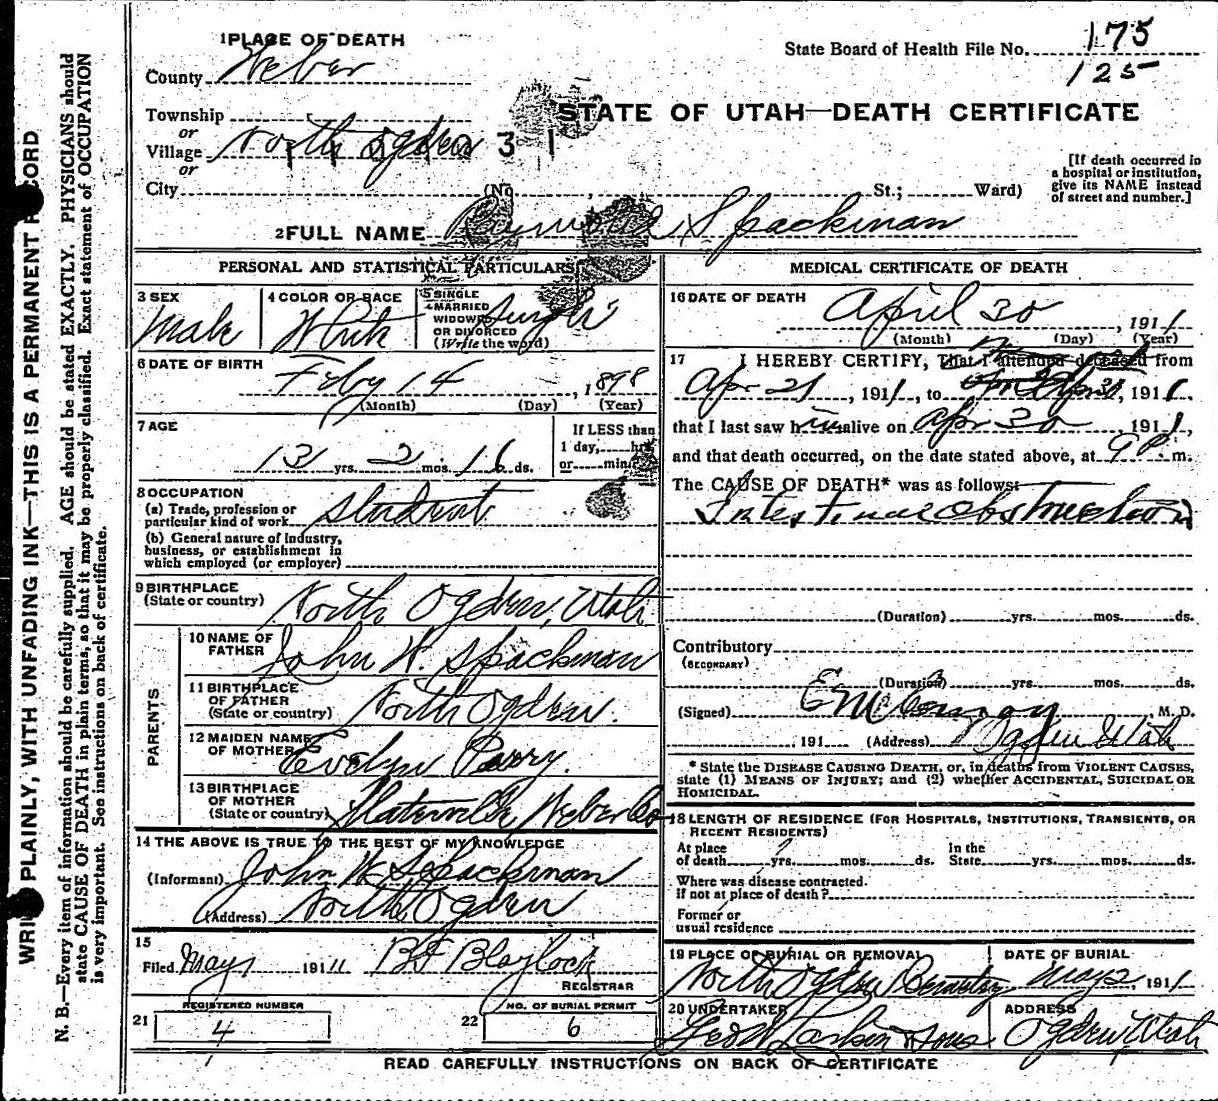 WRITE PLAINLY, WITH UNFADING INK—THIS IS A PERMANENT RECORD
N. B.—Every item of information should be carefully supplied. AGE should be stated EXACTLY. PHYSICIANS should
state CAUSE OF DEATH in plain terms, so that it may be properly classified. Exact statement of OCCUPATION
is very important. See instructions on back of certificate.
1 PLACE OF DEATH
County Weber
State Board of Health File No. 175
125
STATE OF UTAH—DEATH CERTIFICATE
Township
or
Village North Ogden 31
or
City (No. , St.; Ward)
[If death occurred in
a hospital or institution,
give its NAME instead
of street and number.]
2 FULL NAME Spackman
PERSONAL AND STATISTICAL PARTICULARS
3 SEX
Male
4 COLOR OR RACE
White
5 SINGLE
MARRIED
WIDOWED
OR DIVORCED
(Write the word)
Single
6 DATE OF BIRTH
Feby 14, 1898
(Month) (Day) (Year)
7 AGE
13 yrs. 2 mos. 16 ds.
If LESS than
1 day, hrs.
or min.?
8 OCCUPATION
(a) Trade, profession or
particular kind of work Student
(b) General nature of industry,
business, or establishment in
which employed (or employer)
9 BIRTHPLACE
(State or country) North Ogden, Utah
PARENTS
10 NAME OF
FATHER John W. Spackman
11 BIRTHPLACE
OF FATHER
(State or country) North Ogden.
12 MAIDEN NAME
OF MOTHER Evelyn Parry.
13 BIRTHPLACE
OF MOTHER
(State or country) Weber Co
14 THE ABOVE IS TRUE TO THE BEST OF MY KNOWLEDGE
(Informant) John W. Spackman
(Address) North Ogden
15
Filed May 1 1911 B F Blaylock
REGISTRAR
REGISTERED NUMBER
21 4
NO. OF BURIAL PERMIT
22 6
MEDICAL CERTIFICATE OF DEATH
16 DATE OF DEATH
April 30, 1911
(Month) (Day) (Year)
17 I HEREBY CERTIFY, That I attended deceased from
Apr 21, 1911, to 1911
that I last saw him alive on Apr 30, 1911,
and that death occurred, on the date stated above, at 9 P. m.
The CAUSE OF DEATH* was as follows:
Intestinal obstruction
(Duration) yrs. mos. ds.
Contributory
(SECONDARY)
(Duration) yrs. mos. ds.
(Signed) M. D.
, 191 (Address) Ogden Utah
* State the DISEASE CAUSING DEATH, or, in deaths from VIOLENT CAUSES,
state (1) MEANS OF INJURY; and (2) whether ACCIDENTAL, SUICIDAL OR
HOMICIDAL.
18 LENGTH OF RESIDENCE (FOR HOSPITALS, INSTITUTIONS, TRANSIENTS, OR
RECENT RESIDENTS)
At place
of death yrs. mos. ds.
In the
State yrs. mos. ds.
Where was disease contracted.
if not at place of death?
Former or
usual residence
19 PLACE OF BURIAL OR REMOVAL
North Ogden Cemetery
DATE OF BURIAL
May 2, 1911
20 UNDERTAKER
Geo W Larkin & Sons
ADDRESS
Ogden Utah
READ CAREFULLY INSTRUCTIONS ON BACK OF CERTIFICATE